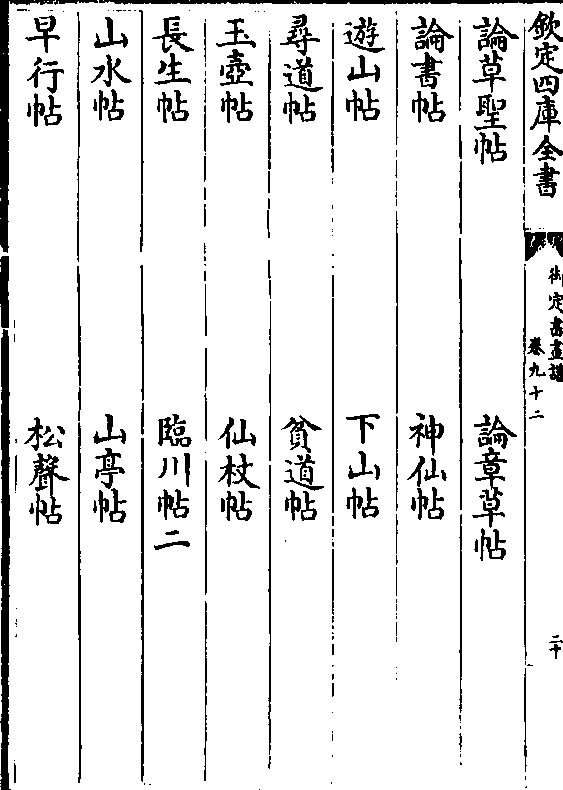 欽定四庫全書
御定書畫譜
卷九十二
二十
論草聖帖　論章草帖
論書帖　神仙帖
遊山帖　下山帖
尋道帖　貧道帖
玉壺帖　仙杖帖
長生帖　臨川帖二
山水帖　山亭帖
早行帖　松聲帖